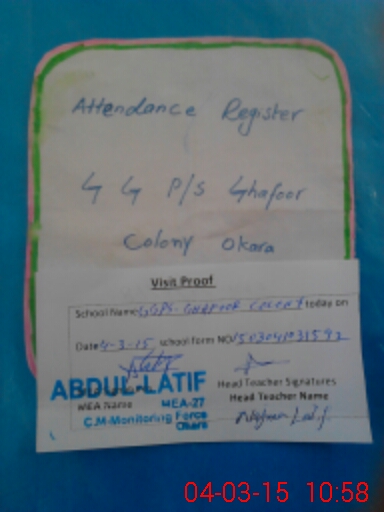 Attendance Register
G G P/S Ghafoor
Colony Okara
Visit Proof
School Name GGPS-Ghafoor Colony today on
Date 4-3-15 school form NO/
ABDUL-LATIF
Head Teacher Signatures
MEA Name MEA-27
Head Teacher Name
C.M-Monitoring Force
Okara
04-03-15 10:58